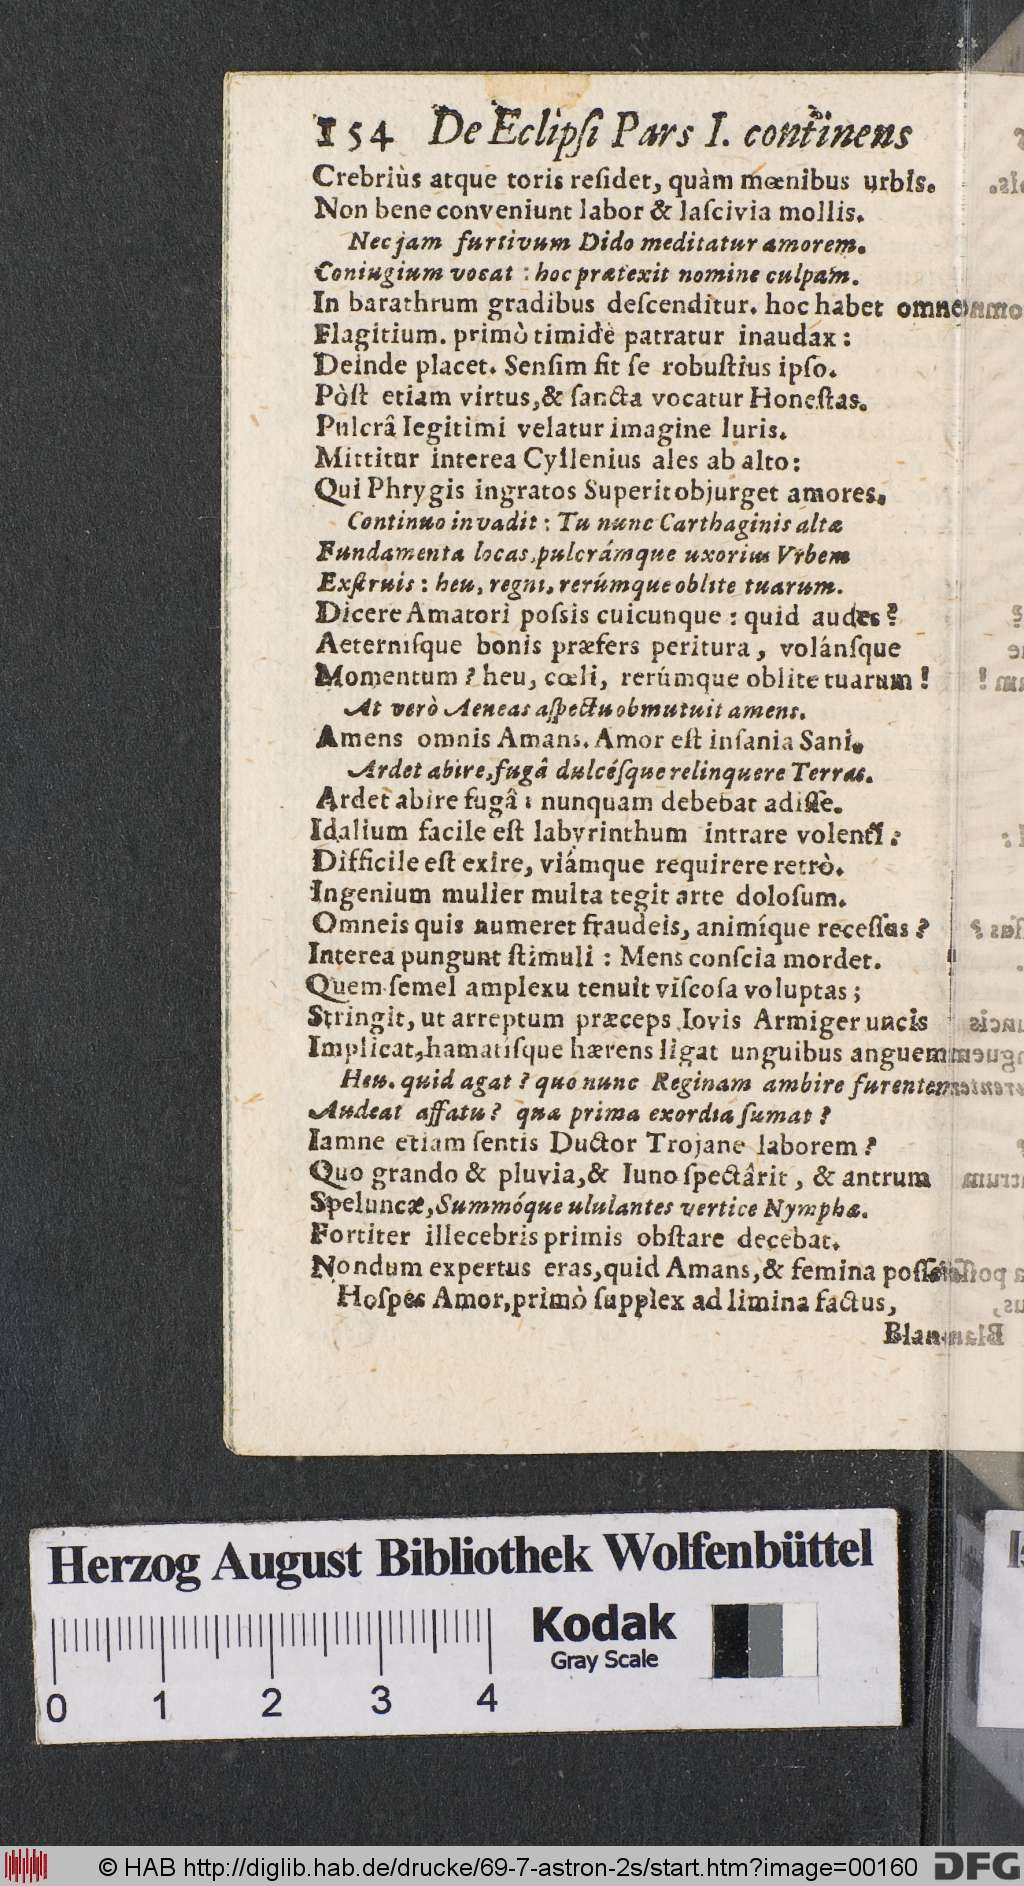 154 De Eclipsi Pars I. continens
Crebriùs atque toris reſidet, quàm mœnibus urbis.
Non bene conveniunt labor & laſcivia mollis.
Nec jam furtivum Dido meditatur amorem.
Coniugium vocat : hoc prætexit nomine culpam.
In barathrum gradibus deſcenditur. hoc habet omne
Flagitium. primò timidè patratur inaudax :
Deinde placet. Senſim fit ſe robuſtius ipſo.
Pòſt etiam virtus,& ſancta vocatur Honeſtas.
Pulcrâ legitimi velatur imagine Iuris.
Mittitur interea Cyllenius ales ab alto:
Qui Phrygis ingratos Superit objurget amores.
Continuo invadit : Tu nunc Carthaginis altæ
Fundamenta locas,pulcrámque uxorius Vrbem
Exſtruis : heu, regni, rerúmque oblite tuarum.
Dicere Amatori poſsis cuicunque : quid audes ?
Aeterniſque bonis præfers peritura, volánſque
Momentum ? heu, cœli, rerúmque oblite tuarum !
At verò Aeneas aſpectu obmutuit amens.
Amens omnis Amans. Amor eſt inſania Sani.
Ardet abire,fugâ dulcéſque relinquere Terras.
Ardet abire fugâ : nunquam debebat adiſſe.
Idalium facile eſt labyrinthum intrare volenti :
Difficile eſt exire, viámque requirere retrò.
Ingenium mulier multa tegit arte doloſum.
Omneis quis numeret fraudeis, animíque receſſus ?
Interea pungunt ſtimuli : Mens conſcia mordet.
Quem ſemel amplexu tenuit viſcoſa voluptas ;
Stringit, ut arreptum præceps Iovis Armiger uncis
Implicat,hamatiſque hærens ligat unguibus anguem
Heu. quid agat ? quo nunc Reginam ambire furentem
Audeat affatu ? quæ prima exordia ſumat ?
Iamne etiam ſentis Ductor Trojane laborem ?
Quo grando & pluvia,& Iuno ſpectârit, & antrum
Speluncæ,Summóque ululantes vertice Nymphæ.
Fortiter illecebris primis obſtare decebat.
Nondum expertus eras,quid Amans,& femina poſſet
Hoſpes Amor,primò ſupplex ad limina factus,
Blan-
Herzog August Bibliothek Wolfenbüttel
Kodak
Gray Scale
0 1 2 3 4
© HAB http://diglib.hab.de/drucke/69-7-astron-2s/start.htm?image=00160 DFG